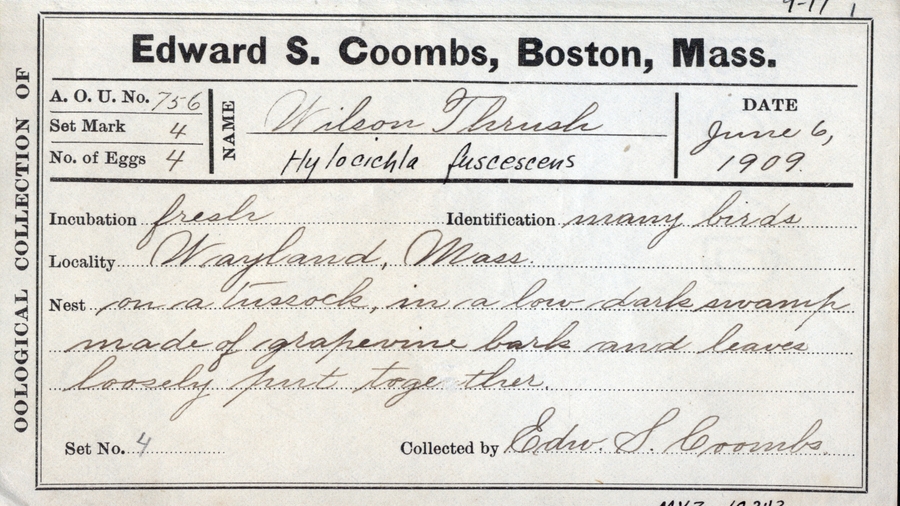 Edward S. Coombs, Boston, Mass.
OOLOGICAL COLLECTION OF
A. O. U. No. 756
Set Mark 4
No. of Eggs 4
NAME
Wilson Thrush
Hylocichla fuscescens
DATE
June 6,
1909.
Incubation fresh Identification many birds
Locality Wayland, Mass.
Nest on a tussock, in a low dark swamp
made of grapevine bark and leaves
loosely put together.
Set No. 4 Collected by Edw. S. Coombs.